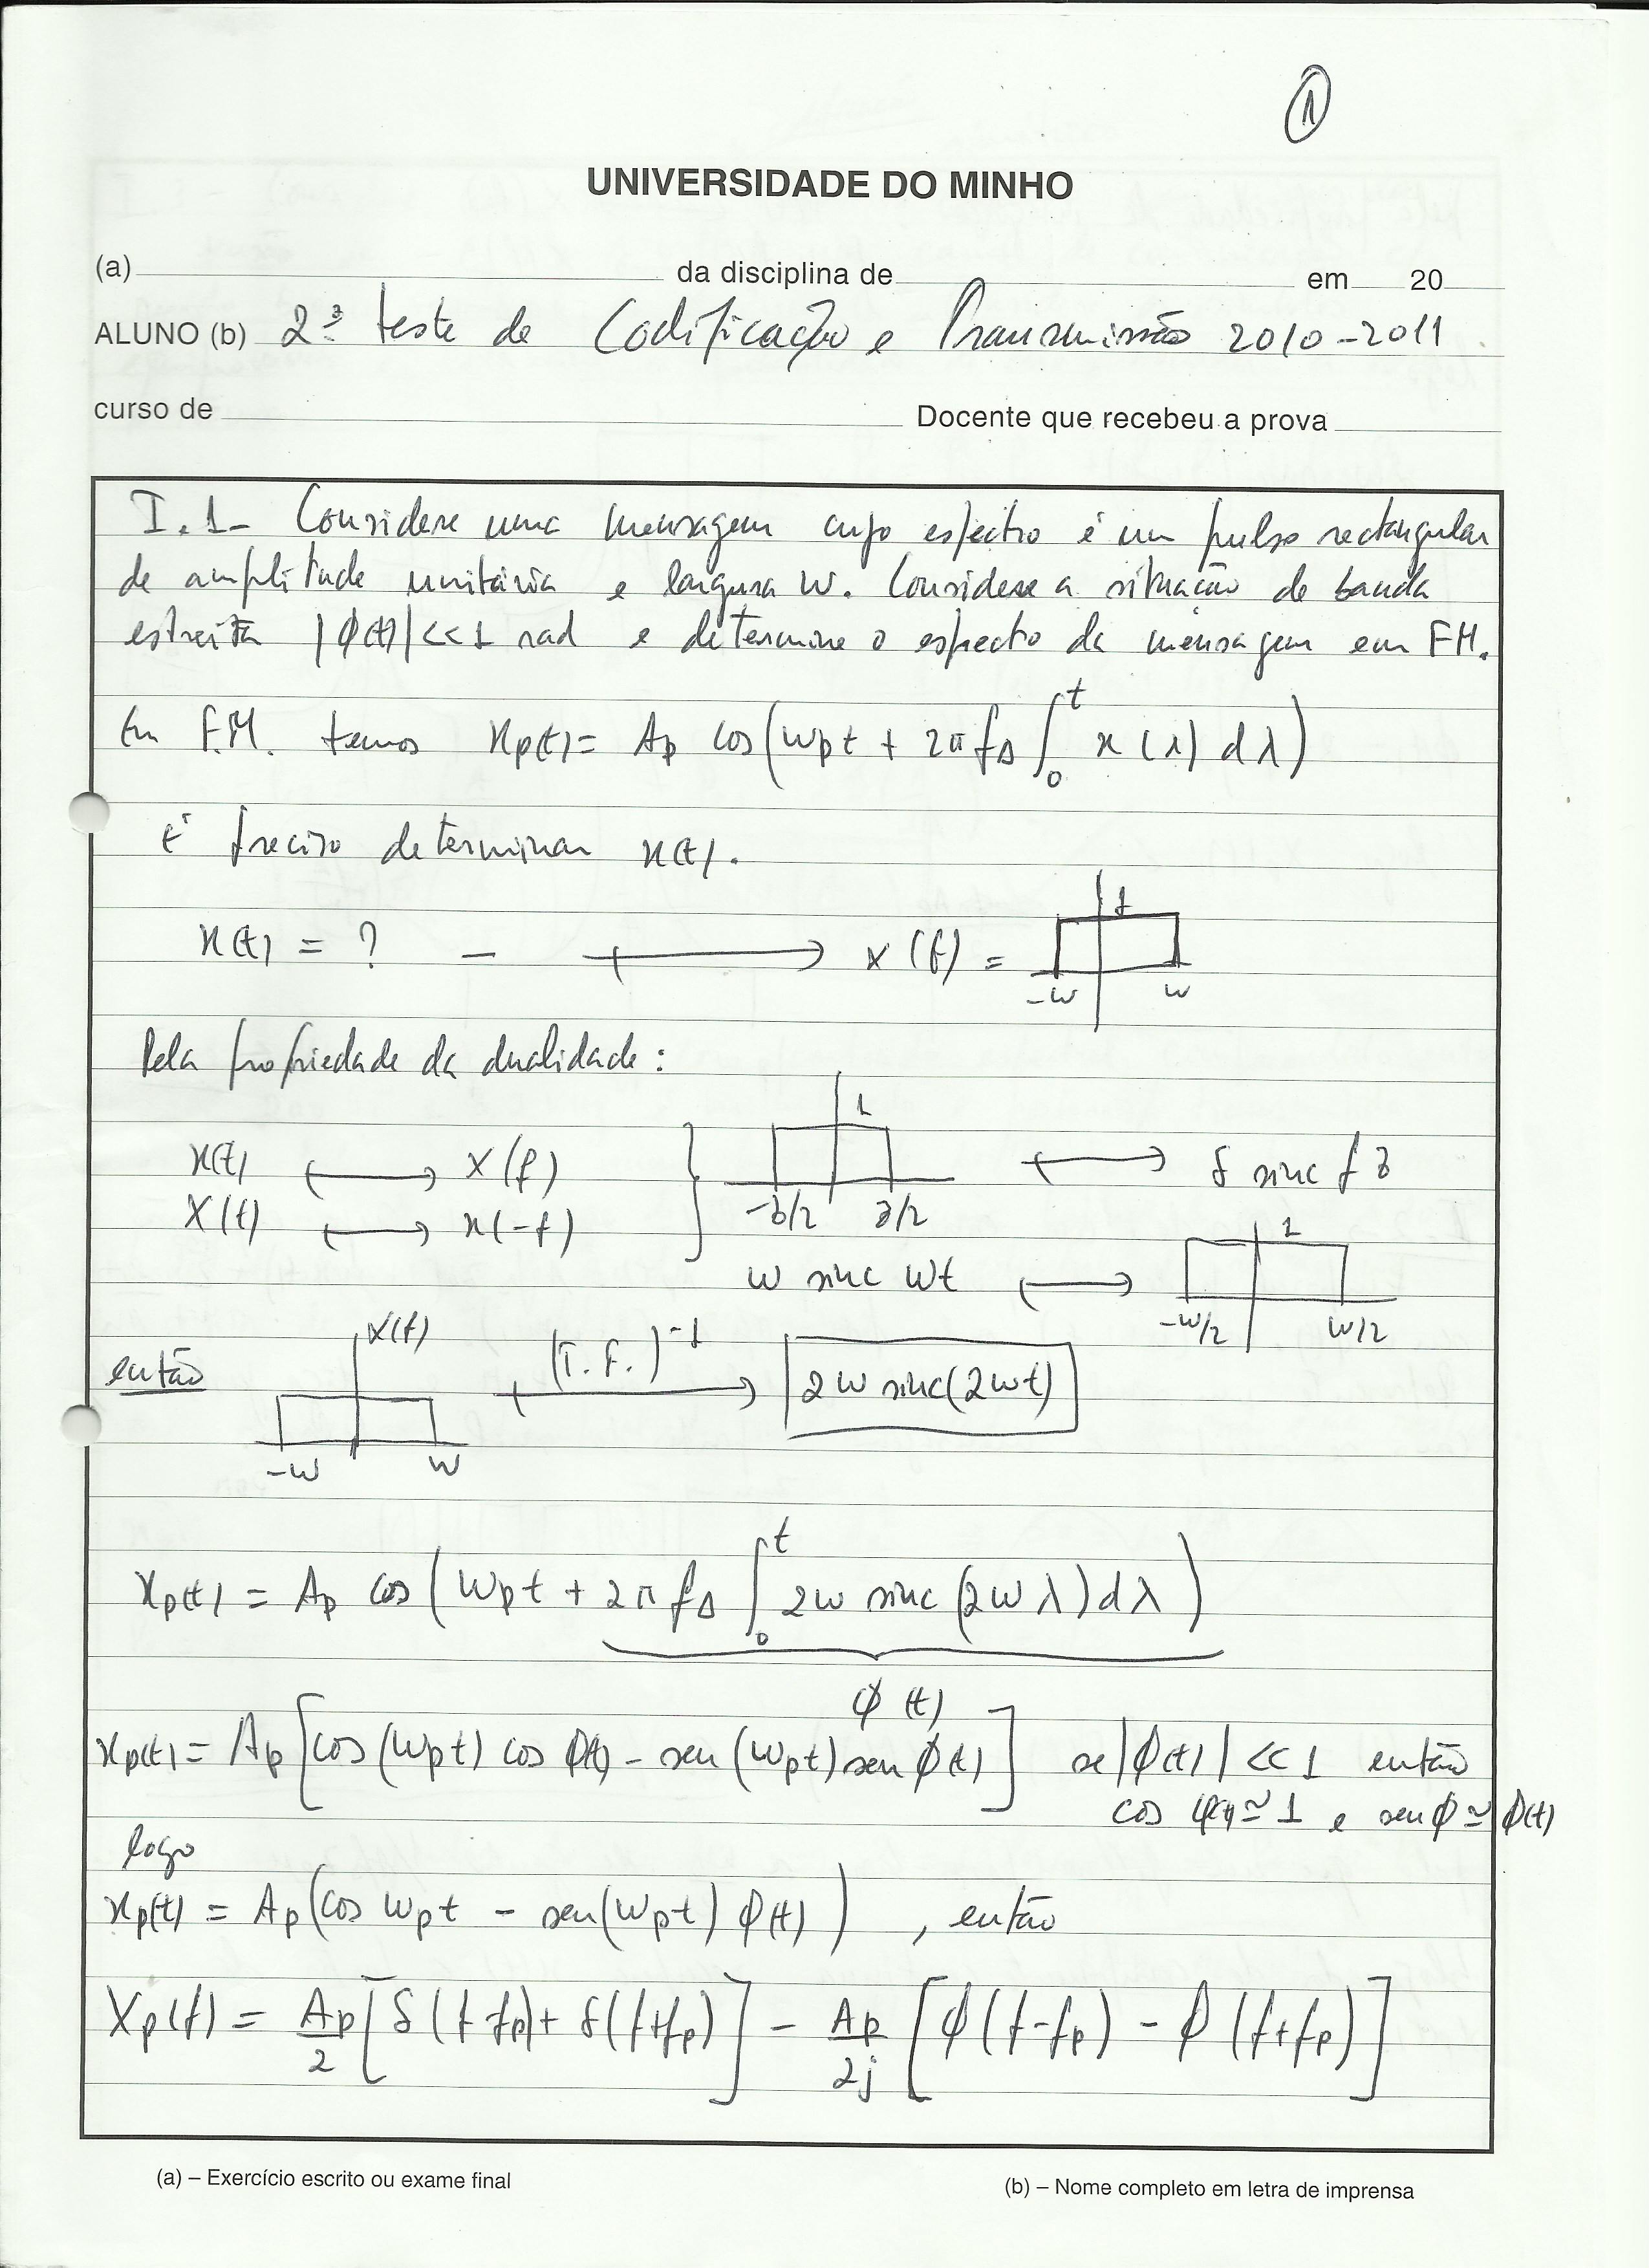 1
UNIVERSIDADE DO MINHO
(a) da disciplina de em 20
ALUNO (b) 2º teste de Codificação e Transmissão 2010-2011
curso de Docente que recebeu a prova
I.1- Considere uma mensagem cujo espectro é um pulso rectangular
de amplitude unitária e largura W. Considere a situação de banda
estreita |ϕ(t)| << 1 rad e determine o espectro da mensagem em FM.
Em F.M. temos xp(t) = Ap cos(wpt + 2π fΔ ∫₀ᵗ x(λ) dλ)
É preciso determinar x(t).
x(t) = ? — ⟼ X(f) = 1 -w w
Pela propriedade da dualidade:
x(t) ⟷ X(f) } 1 -δ/2 δ/2 ⟷ δ sinc f δ
X(t) ⟷ x(-f)
w sinc Wt ⟷ 1 -w/2 w/2
então X(f) -w w (T.F.)⁻¹ ⟼ 2w sinc(2wt)
xp(t) = Ap cos(wpt + 2π fΔ ∫₀ᵗ 2w sinc(2wλ)dλ)
ϕ(t)
xp(t) = Ap[cos(wpt) cos ϕ(t) - sen(wpt) sen ϕ(t)] se |ϕ(t)| << 1 então
cos φ(t) ≃ 1 e sen ϕ ≃ ϕ(t)
logo
xp(t) = Ap(cos wpt - sen(wpt) ϕ(t)) , então
Xp(f) = Ap/2 [δ(f-fp)+ δ(f+fp)] - Ap/2j [ϕ(f-fp) - ϕ(f+fp)]
(a) – Exercício escrito ou exame final
(b) – Nome completo em letra de imprensa